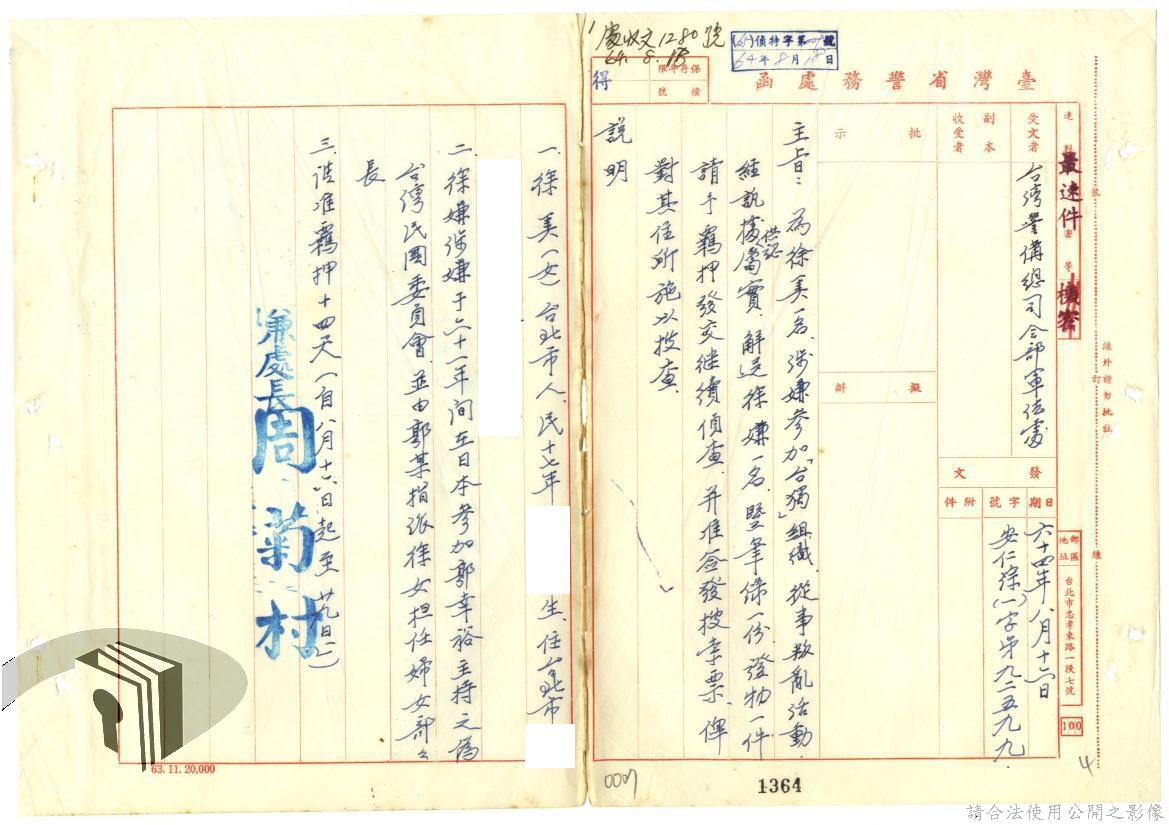 處收文1280號
64. 8. 18
(64)偵特字第 號
64年8月18日
保存年限
檔號
得
臺灣省警務處函
速別
最速件
密等
機密
受文者
台灣警備總司令部軍法處
副本
收受者
批示
擬辦
發文
日期
字號
附件
六十四年八月十六日
安仁综(一)字第九二五九九
郵區
地址
台北市忠孝東路一段七號
100
裝
訂
線
線外請勿批註
主旨:為徐美一名,涉嫌參加「台獨」組織,從事叛亂活動,
經訊據供認屬實,解送徐嫌一名,暨筆錄一份,證物一件
請予羈押發交继續偵查,并准簽發搜索票,俾
對其住所施以搜查。
說明
一、徐美(女)台北市人,民十七年
生,住台北市
二、徐嫌涉嫌于六十一年间在日本參加郭幸裕主持之偽
台灣民國委員會,並由郭某指派徐女担任婦女部々
長
三、請准羈押十四天(自八月十六日起至廿九日止)
兼處長周菊村
63.11.20,000
0007
1364
4
請合法使用公開之影像